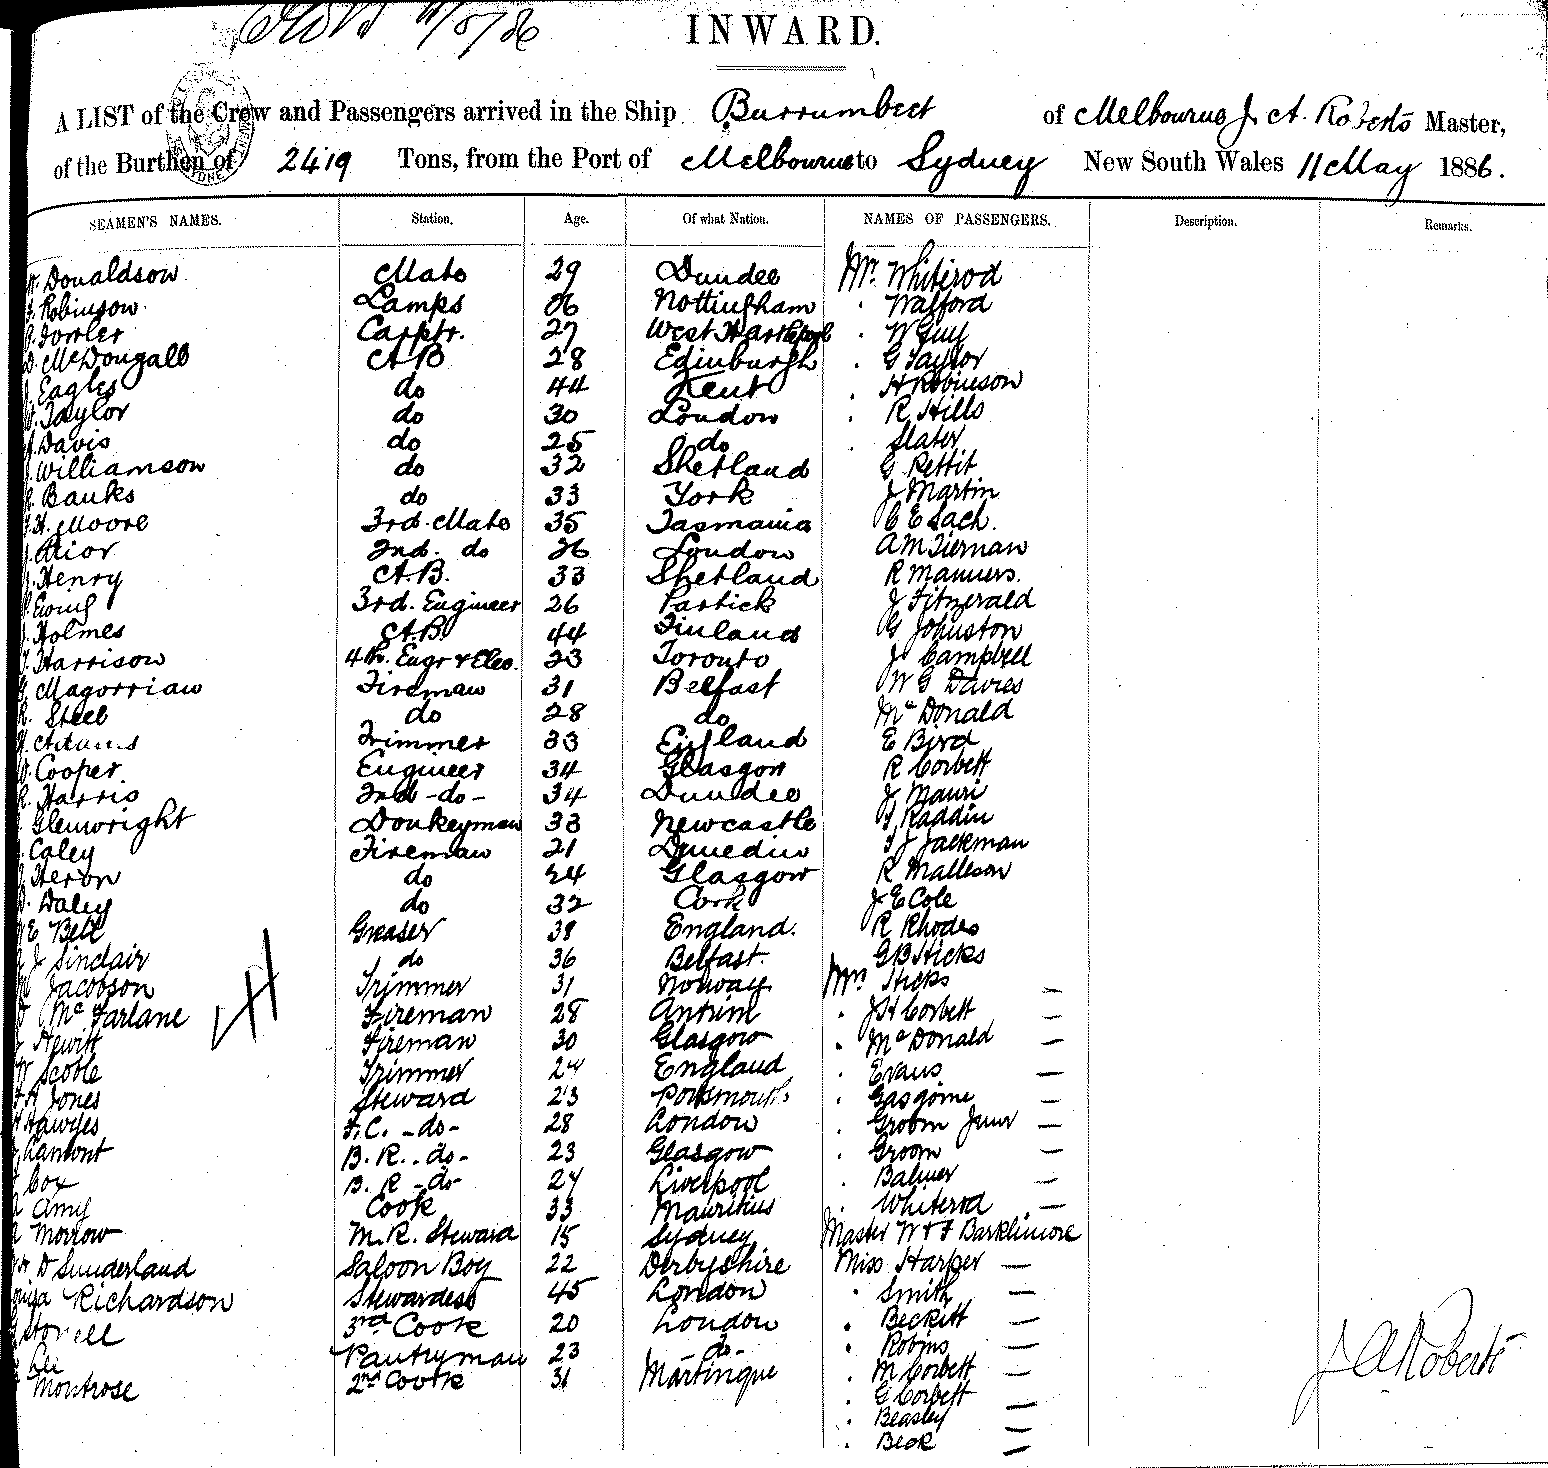 11/5/86
INWARD.
A LIST of the Crew and Passengers arrived in the Ship Burrumbeet of Melbourne J. A. Roberts Master,
of the Burthen of 2419 Tons, from the Port of Melbourne to Sydney New South Wales 11 May 1886.
SEAMEN'S NAMES. Station. Age. Of what Nation. NAMES OF PASSENGERS. Description. Remarks.
Donaldson Mate 29 Dundee Mr. Whiterod
Robinson Lamps 26 Nottingham . Walford
Fowler Carptr. 27 West Hartlepool . W Guy
D. McDougall A.B 28 Edinburgh . G Taylor
J. Eagles do 44 Kent . H Robinson
W. Taylor do 30 London . R Hills
J. Davis do 25 do . Slater
Williamson do 32 Shetland G Pettit
Banks do 33 York J Martin
H. Moore 3rd. Mate 35 Tasmania C E Sach.
Prior 2nd. do 26 London A M Tiernan
Henry A.B. 33 Shetland R Manners.
Ewing 3rd. Engineer 26 Partick J Fitzgerald
Holmes A.B. 44 Finland G Johnston
Harrison 4th. Engr & Elec. 23 Toronto J Campbell
Magorrian Fireman 31 Belfast W G Davies
R. Steel do 28 do McDonald
Adams Trimmer 33 England E Bird
W. Cooper. Engineer 34 Glasgow R Corbett
R. Harris 2nd -do- 34 Dundee J Mauri
Glenwright Donkeyman 33 Newcastle Raddin
Caley Fireman 21 Dunedin T J Jackman
Heron do 24 Glasgow R Malleson
D. Daley do 32 Cork J E Cole
E Bell Greaser 38 England. R Rhodes
J Sinclair do 36 Belfast. G B Hicks
Jacobson Trimmer 31 Norway Mrs Hicks —
McFarlane Fireman 28 Antrim . J H Corbett —
Hewitt Fireman 30 Glasgow . McDonald —
W Scoble Trimmer 24 England . Evans —
H Jones Steward 23 Portsmouth . Gasgoine —
Hawyes F.C. -do- 28 London . Groom Junr —
Lamont B. R. -do- 23 Glasgow . Groom —
Cox B. R -do- 24 Liverpool . Balmer —
Amy Cook 33 Mauritius . Whiterod —
Morrow M.R. Steward 15 Sydney Master W & F Barklimore
D Sunderland Saloon Boy 22 Derbyshire Miss Harper —
Richardson Stewardess 45 London . Smith —
3rd Cook 20 London . Beckitt —
Pantryman 23 -do- . Robins —
Montrose 2nd Cook 31 Martinque . M Corbett —
. G Corbett —
. Beasley —
. Beor —
J A Roberts